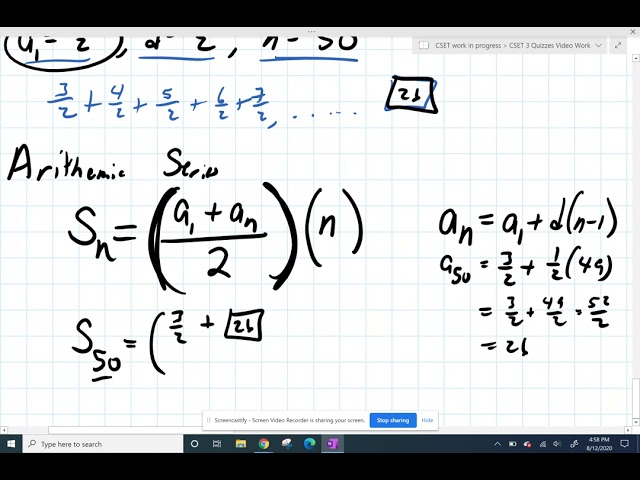 a₁ = 3/2, d = 1/2, n = 50
CSET work in progress > CSET 3 Quizzes Video Work
3/2 + 4/2 + 5/2 + 6/2 + 7/2, ...... 26
Arithemic Series
Sₙ = ((a₁ + aₙ)/2)(n)
aₙ = a₁ + d(n-1)
a₅₀ = 3/2 + 1/2(49)
= 3/2 + 49/2 = 52/2
= 26
S₅₀ = (3/2 + 26
Screencastify - Screen Video Recorder is sharing your screen. Stop sharing Hide
Type here to search
4:58 PM
8/12/2020